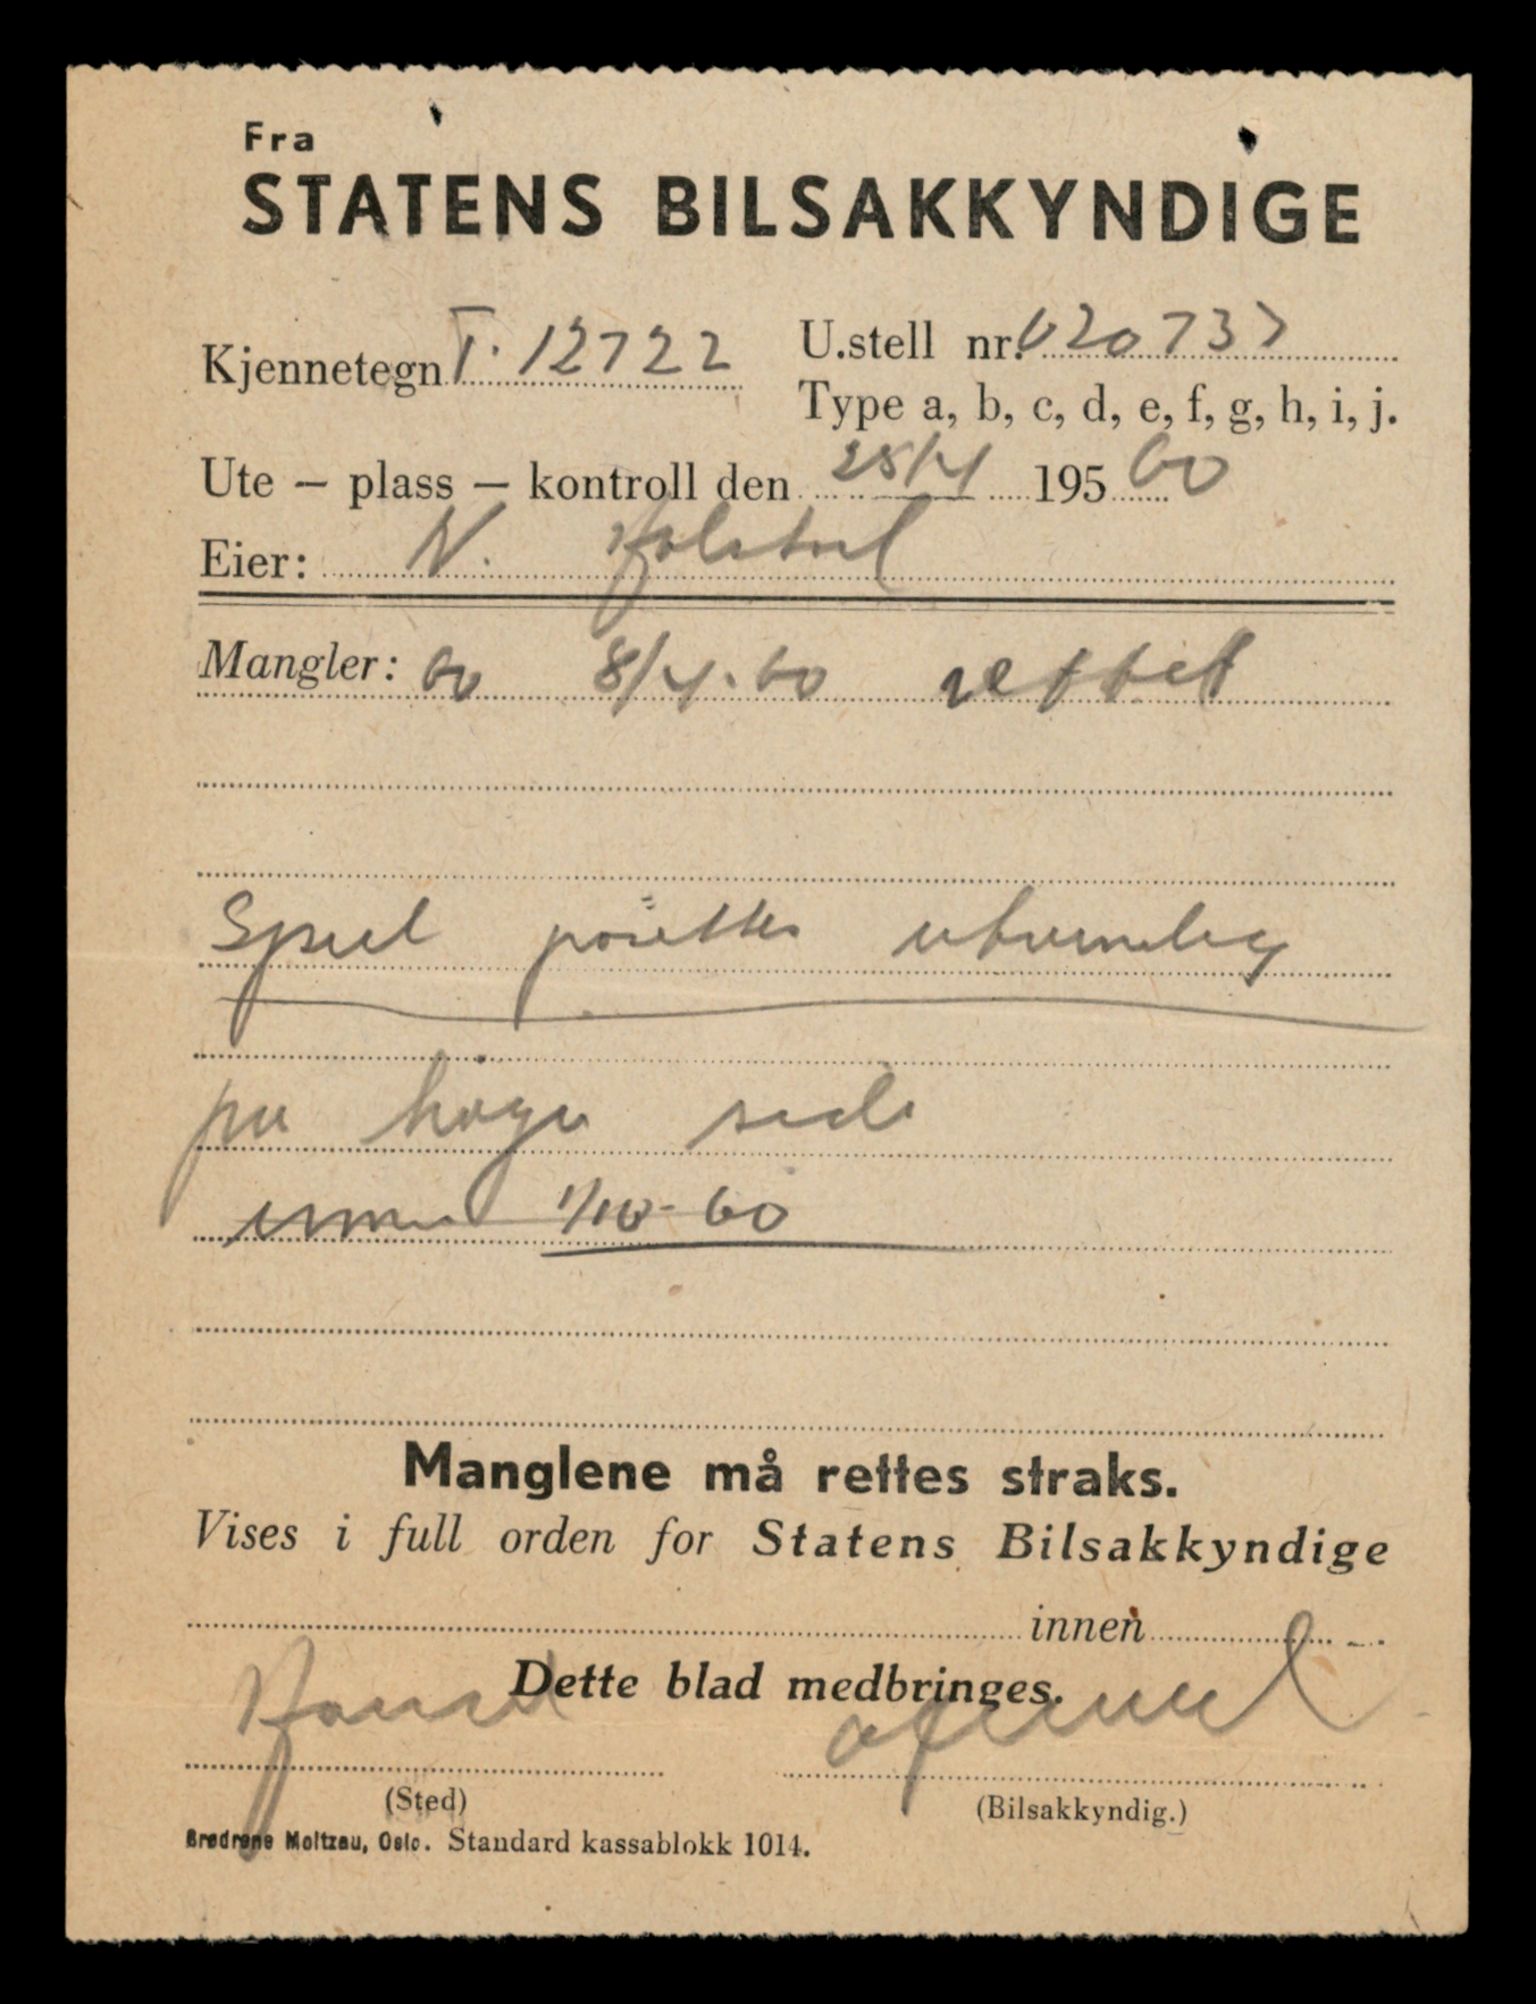 Fra
STATENS BILSAKKYNDIGE
Kjennetegn T. 12722
U.stell nr. 020737
Type a, b, c, d, e, f, g, h, i, j.
Ute — plass — kontroll den 25/4 195 60
Eier: N.
Mangler: av 8/4.60 rettet
Speil påsettes utvendig
på høyre side
innen 1/10-60
Manglene må rettes straks.
Vises i full orden for Statens Bilsakkyndige
innen
Dette blad medbringes.
(Sted)
(Bilsakkyndig.)
Brødrene Moltzau, Oslo. Standard kassablokk 1014.